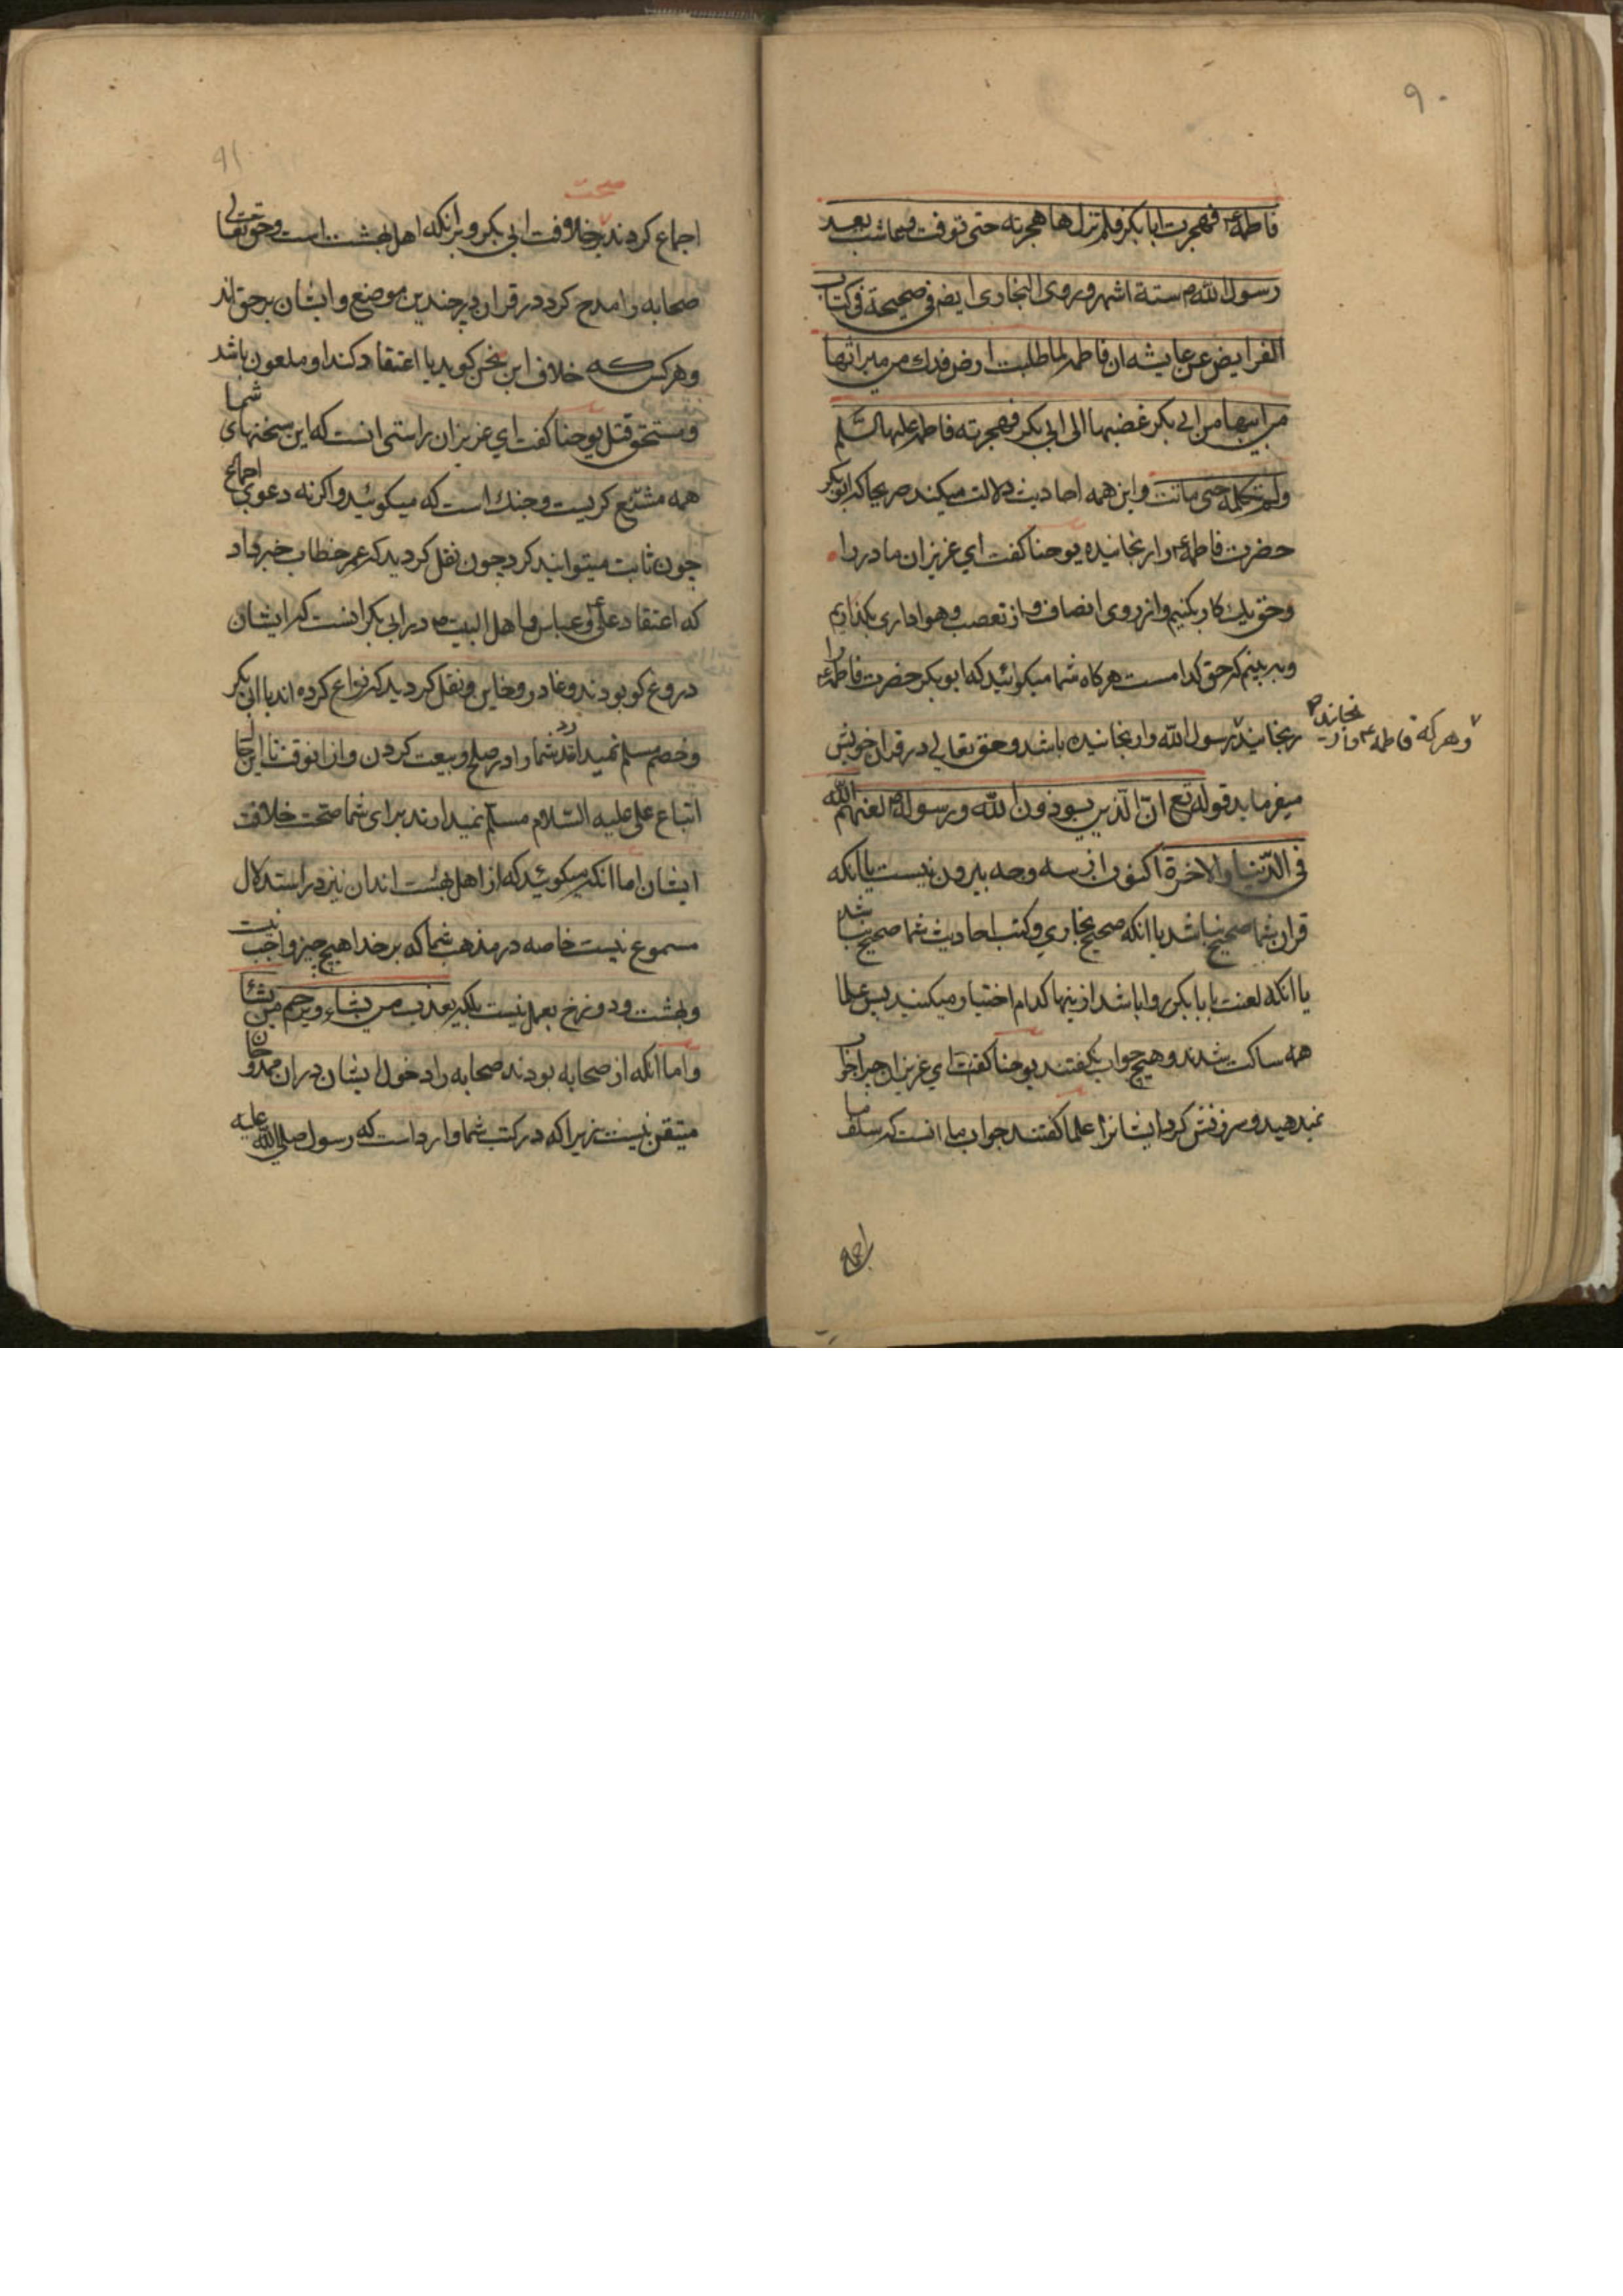 ۹۰
فاطمة ع فهجرت ابا بکر فلم تزل هاجرته حتی توفت وعاشت بعد
رسول الله ص ستة اشهر و روی البخاری ایض فی صحیحة فی کتاب
الفرایض عن عایشه ان فاطمه لما طلبت ارض فدك من میراثها
من ابیها من ابی بکر غضبها الی ابی بکر فهجرته فاطمه علیها السّلم
ولم تکلمه حتی ماتت و این همه احادیث دلالت میکند صریحا که ابو بکر
حضرت فاطمه ع را رنجانیده یوحنا کفت ای عزیزان ما در راه
وحق یك کار بکنیم و از روی انصاف و از تعصب و هواداری بکذاریم
و به بینیم که حق کدامست هرکاه شما میکوائید که ابو بکر حضرت فاطمه ع را
رنجانیده رسول الله را رنجانیده باشد و حق تعالی در قران خویش
وهرکه فاطمه ع را رنجانیده
میفرماید قوله تع انّ الّذین یوذون الله و رسوله لعنهم الله
فی الدّنیا والاخرة اکنون از سه وجه بیرون نیست یا انکه
قران شما صحیح نباشد یا انکه صحیح بخاری و کتب احادیث شما صحیح نباشد
یا انکه لعنت بابا بکر روا باشد از ینها کدام اختیار میکنید پس علما
همه ساکت شدند و هیچ جواب نکفتند یوحنا کفت ای عزیزان چرا جواب
نمیدهید و سرزنش کرد ایشانرا علما کفتند جواب ما انست که سلف ما
اجماع
۹۱
اجماع کردند بر صحت خلافت ابی بکر و بر انکه اهل بهشت است و حق تعالی
صحابه را مدح کرد در قران در چندین موضع و ایشان بر حق اند
و هر کس که خلاف این سخن کوید یا اعتقاد کند او ملعون باشد
و مستحق قتل یوحنا کفت ای عزیزان راستی انست که این سخنهای شما
همه مشنّع کریست و جنك است که میکوئید و اکر نه دعوی اجماع
چون ثابت میتوانید کرد چون نقل کردید که عمر خطاب خبر داد
که اعتقاد علی ع و عباس و اهل البیت در ابی بکر انست که ایشان
دروغ کو بودند و غادر و خاین و نقل کردید که نزاع کرده اند با ابی بکر
و خصم مسلم نمیدارد شما را در صلح و بیعت کردن و از انوقت تا الی حال
اتباع علی علیه السّلام مسلّم نمیدارند برای شما صحّت خلافت
ایشان اما انکه میکوئید که از اهل بهشت اند ان نیز در استدلال
مسموع نیست خاصه در مذهب شما که بر خدا هیچ چیز واجب نیست
و بهشت و دوزخ بعمل نیست بلکه یعذب من یشاء و یرحم من یشاء
و اما انکه از صحابه بودند صحابه را دخول ایشان در ان ممدوحان
متیقن نیست زیرا که در کتب شما وارد است که رسول صلی الله علیه